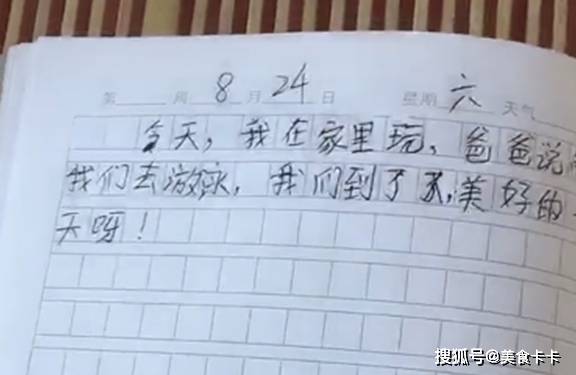 第 周 8月24日 星期六 天气
今天，我在家里玩，爸爸说
我们去游泳，我们到了,美好的
天呀！
搜狐号@美食卡卡